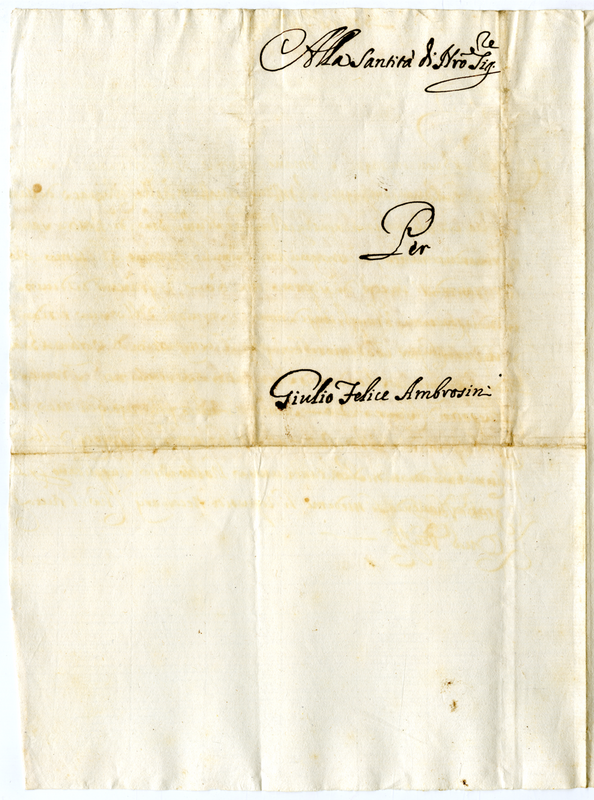 Alla Santità di Nro Sig.re
Per
Giulio Felice Ambrosini